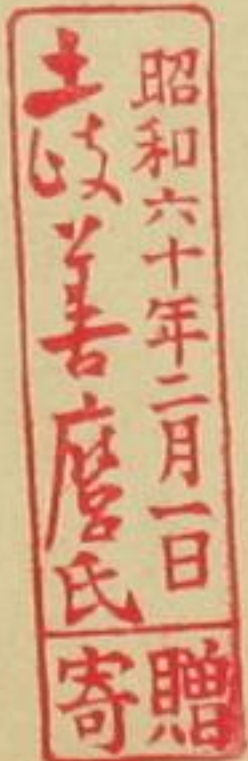 昭和六十年二月一日
土岐善麿氏
寄贈